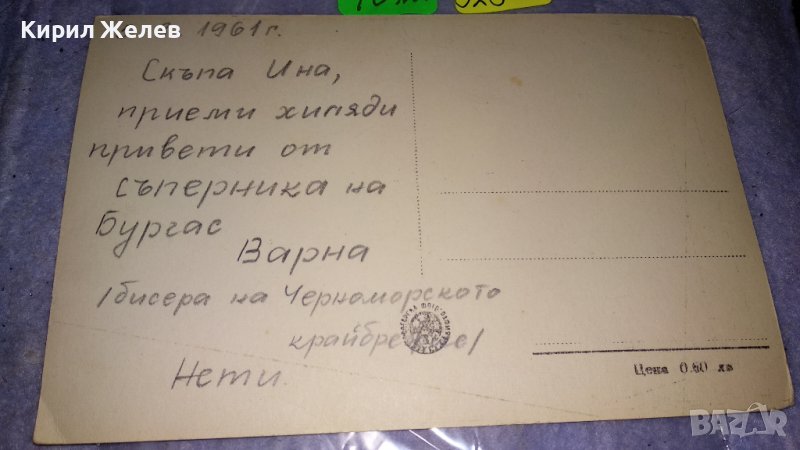 Кирил Желев
1961 г.
Скъпа Ина,
приеми хиляди
привети от
съперника на
Бургас
Варна
/бисера на Черноморското
крайбрежие/
Нети.
Цена 0.60 лв
BAZAR